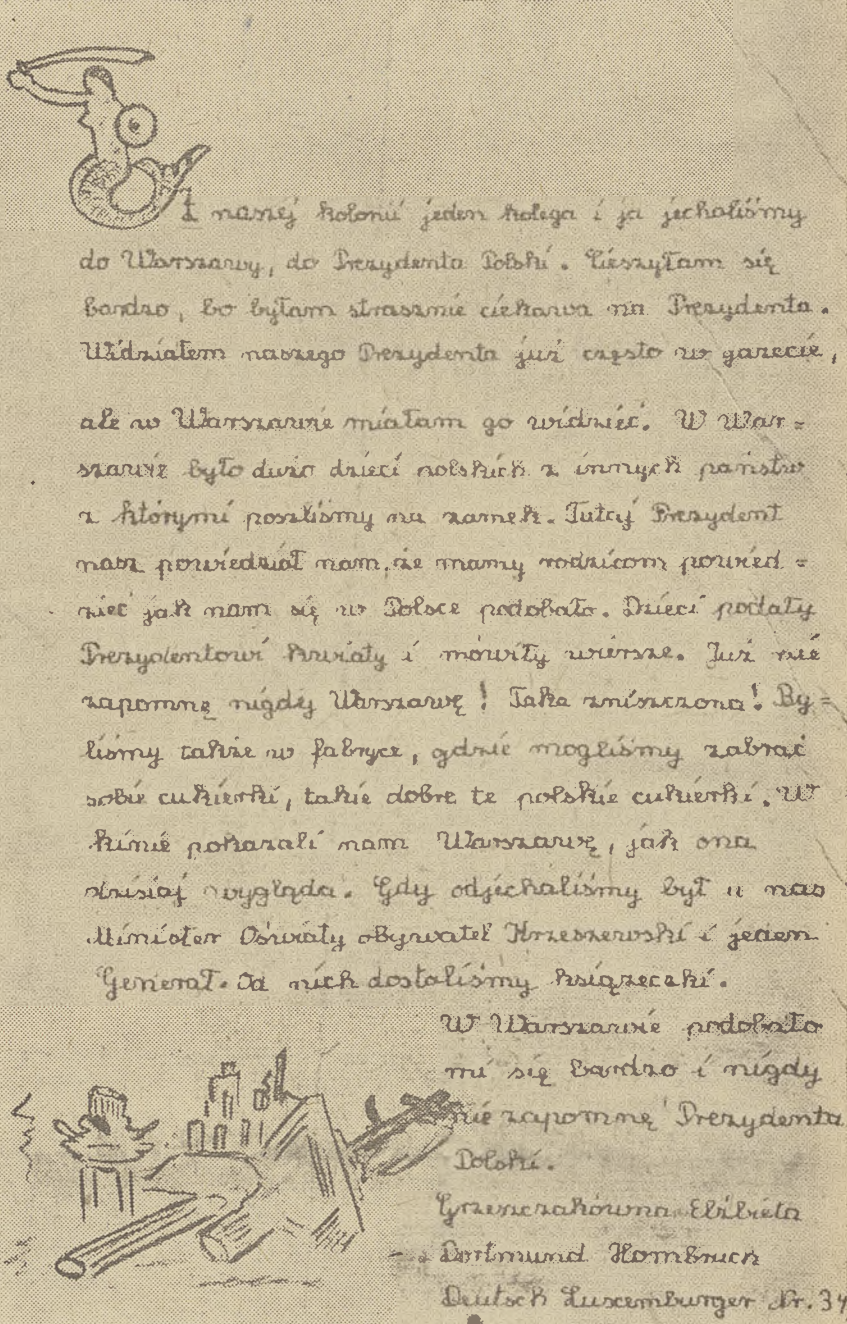 Z naszej kolonii jeden kolega i ja jechaliśmy
do Warszawy, do Prezydenta Polski. Cieszyłam się
bardzo, bo byłam strasznie ciekawa na Prezydenta.
Widziałem naszego Prezydenta już często w gazecie,
ale w Warszawie miałam go widzieć. W War=
szawie było dużo dzieci polskich z innych państw
z którymi poszliśmy na zamek. Tutaj Prezydent
nasz powiedział nam, że mamy rodzicom powied=
zieć jak nam się w Polsce podobało. Dzieci podały
Prezydentowi kwiaty i mówiły wiersze. Już nie
zapomnę nigdy Warszawę! Taka zniszczona! By=
liśmy także w fabryce, gdzie mogliśmy zabrać
sobie cukierki, takie dobre te polskie cukierki. W
kinie pokazali nam Warszawę, jak ona
dzisiaj wygląda. Gdy odjechaliśmy był u nas
Minister Oświaty obywatel Krzeszewski i jeden
Generał. Od nich dostaliśmy książeczki.
W Warszawie podobało
mi się bardzo i nigdy
nie zapomnę Prezydenta
Polski.
Grzenczakówna Elżbieta
Dortmund Hombruch
Deutsch Luxemburger Nr. 34